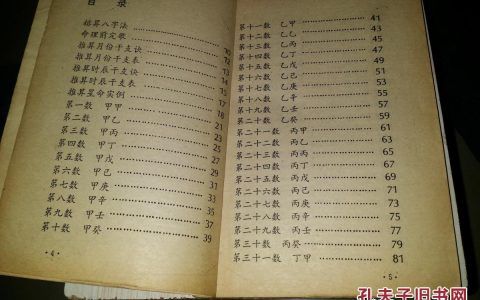 目 录
推算八字法
命理前定歌
推算月份干支诀
推算月份干支表
推算时辰干支诀
推算时辰干支表
推算星命实例
第一数 甲甲 21
第二数 甲乙 23
第三数 甲丙 25
第四数 甲丁 27
第五数 甲戊 29
第六数 甲己 31
第七数 甲庚 33
第八数 甲辛 35
第九数 甲壬 37
第十数 甲癸 39
·4·
第十一数 乙甲 41
第十二数 乙乙 43
第十三数 乙丙 45
第十四数 乙丁 47
第十五数 乙戊 49
第十六数 乙己 51
第十七数 乙庚 53
第十八数 乙辛 55
第十九数 乙壬 57
第二十数 乙癸 59
第二十一数 丙甲 61
第二十二数 丙乙 63
第二十三数 丙丙 65
第二十四数 丙丁 67
第二十五数 丙戊 69
第二十六数 丙己 71
第二十七数 丙庚 73
第二十八数 丙辛 75
第二十九数 丙壬 77
第三十数 丙癸 79
第三十一数 丁甲 81
·5·
孔夫子旧书网